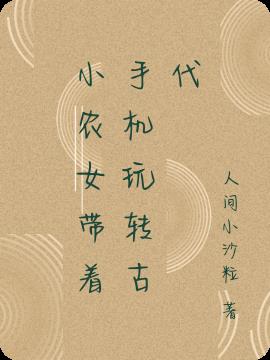 小农女带着
手机玩转古
代
人间小沙粒 著